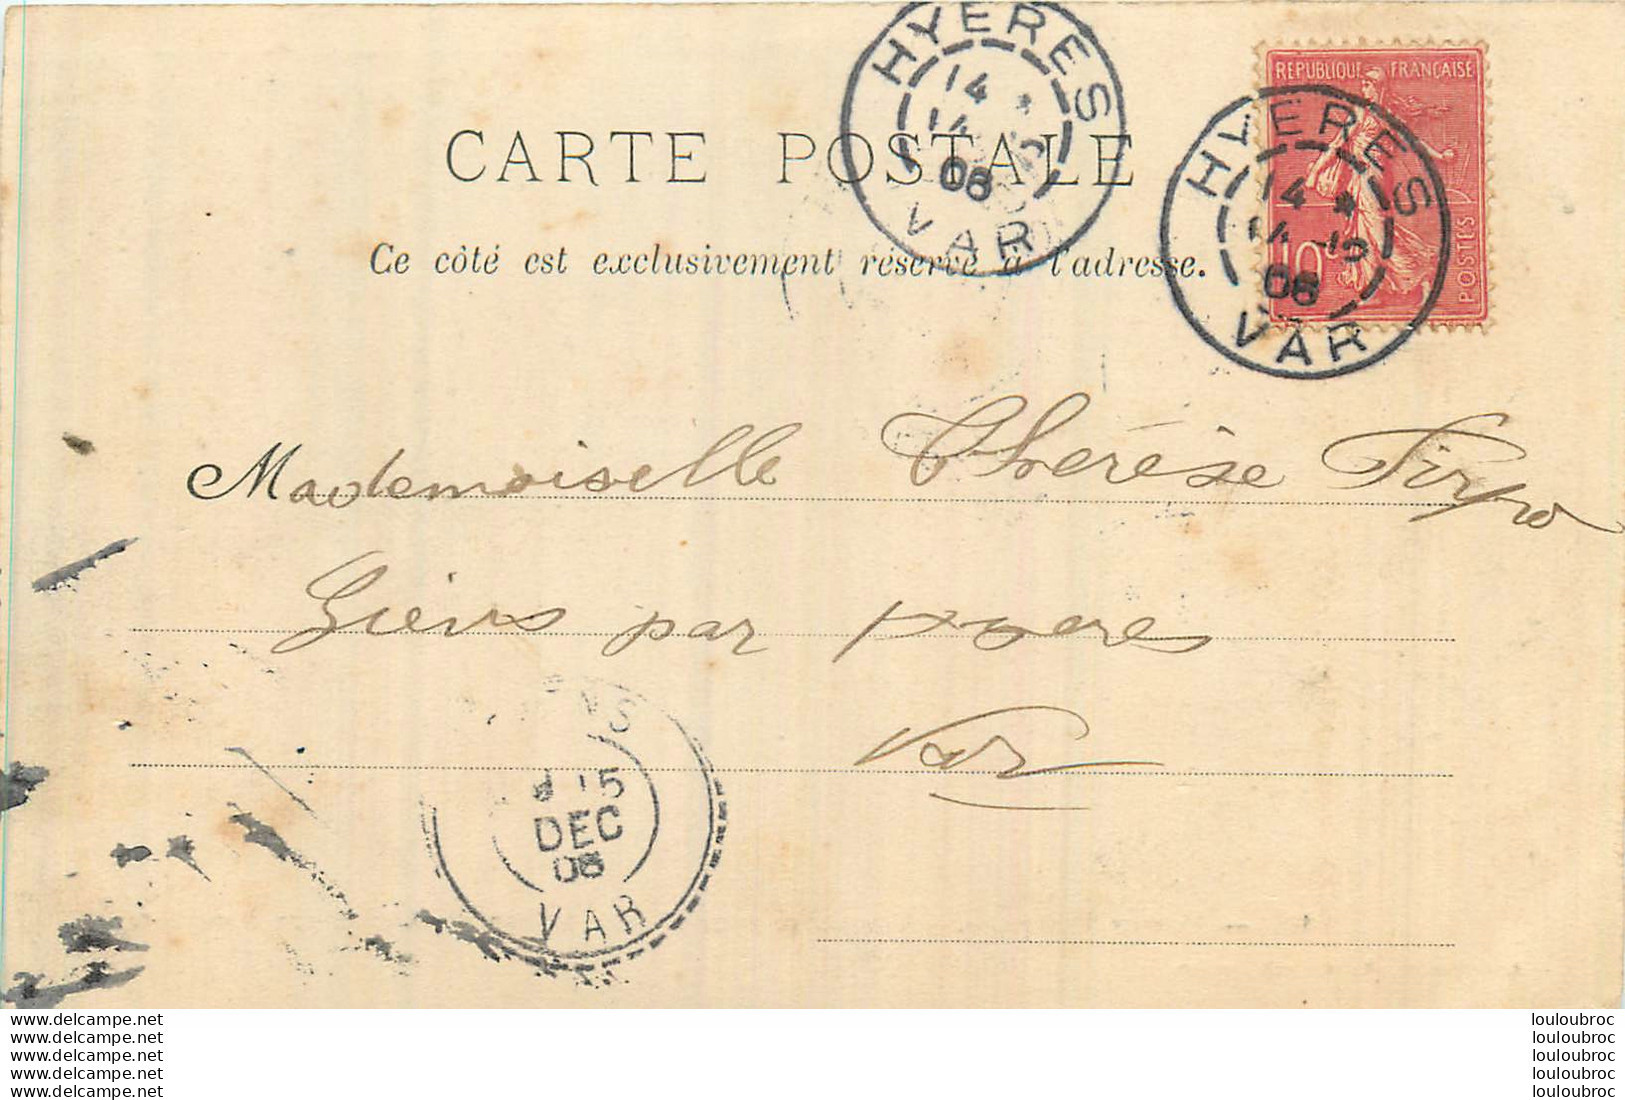 HYERES
14 *
14 12
08
VAR
REPUBLIQUE FRANÇAISE
10
POSTES
HYERES
14 *
14 12
08
VAR
CARTE POSTALE
Ce côté est exclusivement réservé à l'adresse.
Mademoiselle Thérèse Firpo
Giens par Hyeres
Var
NS
15
DEC
08
VAR
www.delcampe.net
www.delcampe.net
www.delcampe.net
www.delcampe.net
www.delcampe.net
louloubroc
louloubroc
louloubroc
louloubroc
louloubroc